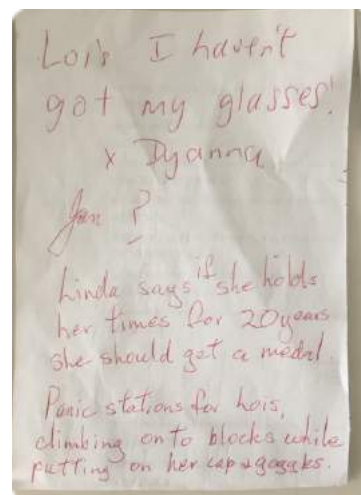 Lois I haven't
got my glasses!
x Dyanna
Jan ?
Linda says if she holds
her times for 20 years
she should get a medal.
Panic stations for Lois,
climbing on to blocks while
putting on her cap & goggles.